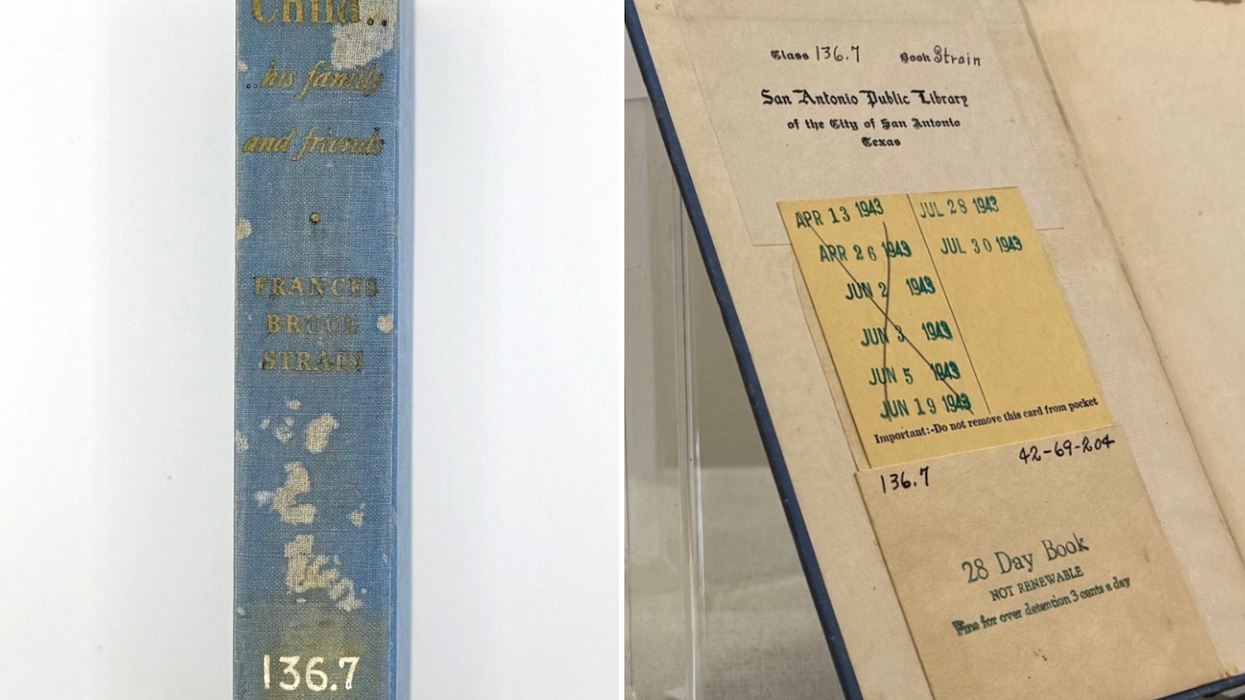 Child..
..his family
and friends
FRANCES
BRUCE
STRAIN
136.7
Class 136.7 Book Strain
San Antonio Public Library
of the City of San Antonio
Texas
APR 13 1943
APR 26 1943
JUN 2 1943
JUN 3 1943
JUN 5 1943
JUN 19 1943
JUL 28 1943
JUL 30 1943
Important:-Do not remove this card from pocket
136.7 42-69-204
28 Day Book
NOT RENEWABLE
Fine for over detention 3 cents a day